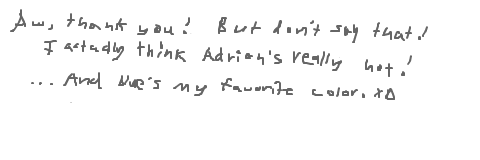 Aw, thank you! But don't say that!
I actually think Adrian's really hot!
... And blue's my favorite color. XD